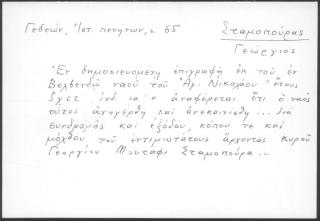 Γεδεών, Ἱστ. πενήτων, σ. 65
Σταμοπούρας
Γεώργιος
Ἐν δημοσιευομένῃ ἐπιγραφῇ ἐκ τοῦ ἐν
Βελβενδῷ ναοῦ τοῦ Ἁγ. Νικολάου "ἔτους
ἰνδ. ια´" ἀναφέρεται ὅτι ὁ ναὸς
οὗτος ἀνηγέρθη καὶ ἀνεκαινίσθη... διὰ
συνδρομῆς καὶ ἐξόδου, κόπου τε καὶ
μόχθου τοῦ ἐντιμωτάτους ἄρχοντος κυροῦ
Γεωργίου Σταμοπούρα...